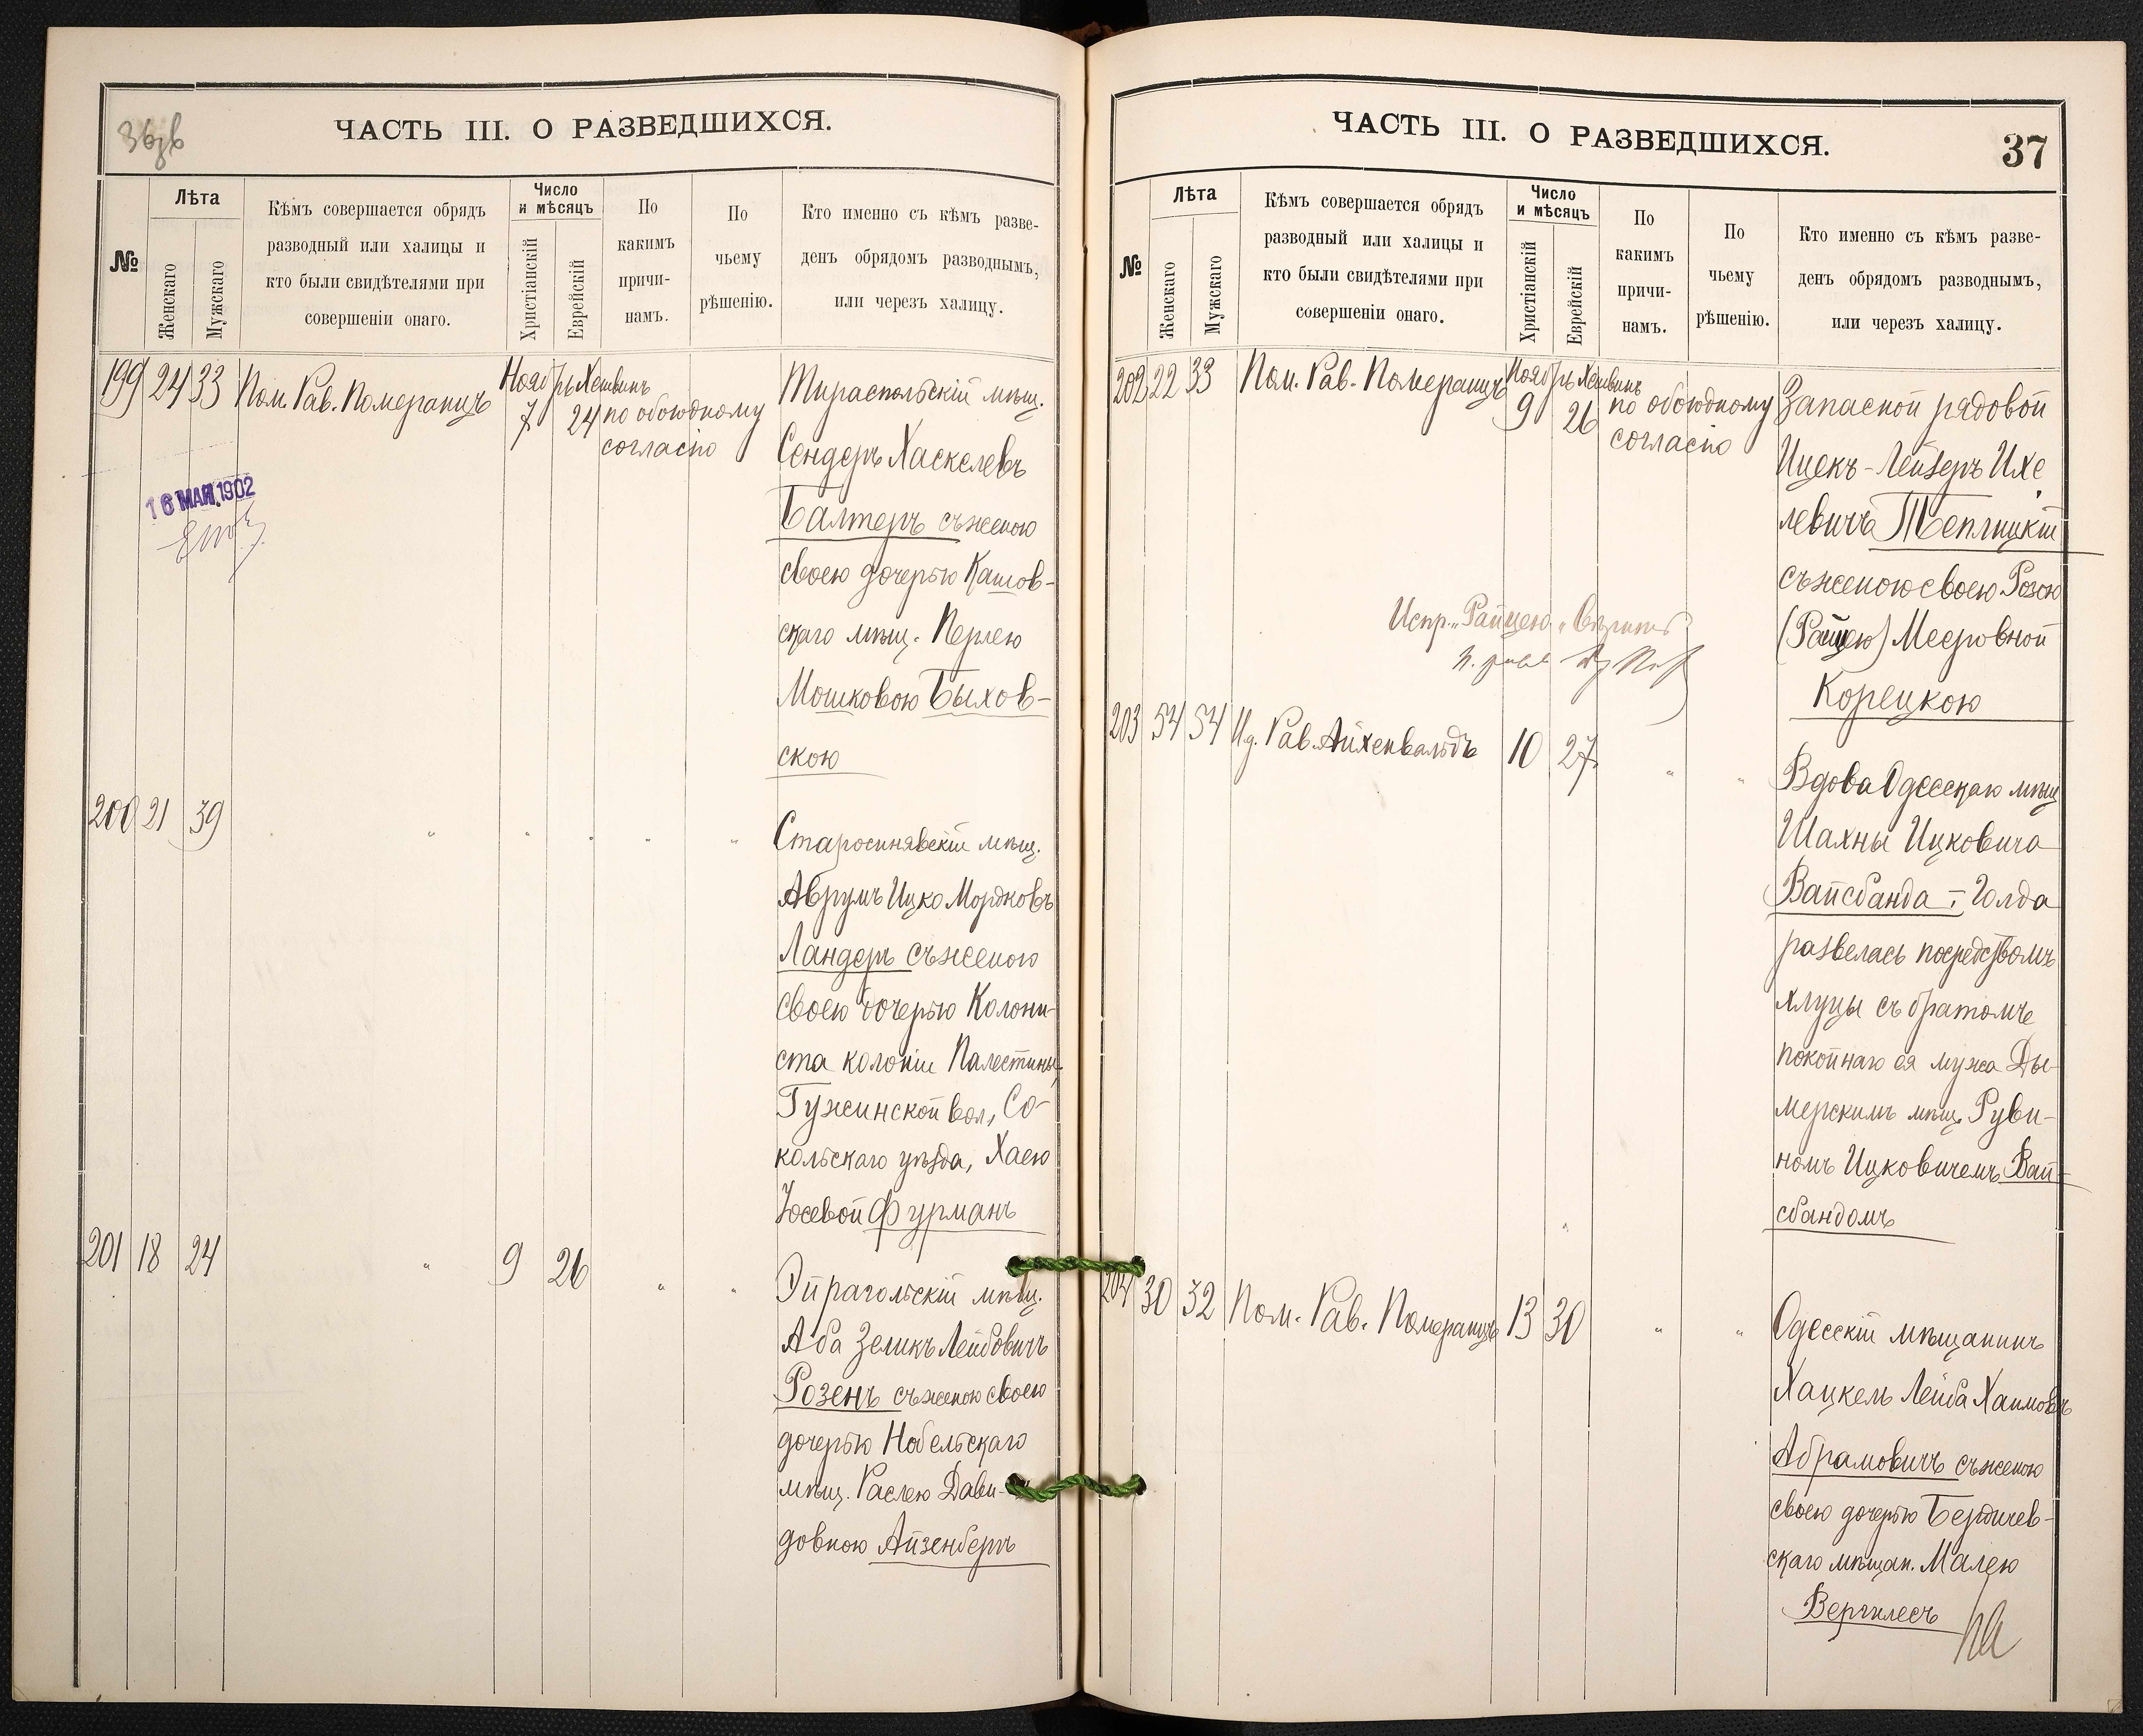 ЧАСТЬ III. О РАЗВЕДШИХСЯ.
№
Лѣта
Женскаго
Мужскаго
Кѣмъ совершается обрядъ
разводный или халицы и
кто были свидѣтелями при
совершеніи онаго.
Число
и мѣсяцъ
Христіанскій
Еврейскій
По
какимъ
причи-
намъ.
По
чьему
рѣшенію.
Кто именно съ кѣмъ разве-
денъ обрядомъ разводнымъ,
или черезъ халицу.
199 24 33 Пом. Рав. Померанцъ Ноябрь 7 Хешвинъ 24 по обоюдному
согласію
Тираспольскій мѣщ.
Сендеръ Хаскелевъ
Балтеръ съ женою
своею дочерью Кашов-
скаго мѣщ. Перлею
Мошковою Быхов-
скою
16 МАЯ 1902
200 21 39 " " " " "
Старосинявскій мѣщ.
Аврумъ Ицко Мордковъ
Ландеръ съ женою
своею дочерью Колони-
ста колоніи Палестины,
Гужинской вол., Со-
кольскаго уѣзда, Хаею
Іосевой Фурманъ
201 18 24 " 9 26 " "
Эйрагольскій мѣщ.
Аба Зеликъ Лейбовичъ
Розенъ съ женою своею
дочерью Нобельскаго
мѣщ. Раслею Дави-
довною Айзенбергъ
ЧАСТЬ III. О РАЗВЕДШИХСЯ.
37
№
Лѣта
Женскаго
Мужскаго
Кѣмъ совершается обрядъ
разводный или халицы и
кто были свидѣтелями при
совершеніи онаго.
Число
и мѣсяцъ
Христіанскій
Еврейскій
По
какимъ
причи-
намъ.
По
чьему
рѣшенію.
Кто именно съ кѣмъ разве-
денъ обрядомъ разводнымъ,
или черезъ халицу.
202 22 33 Пом. Рав. Померанцъ Ноябрь 9 Хешвинъ 26 по обоюдному
согласію
Запасной рядовой
Ицекъ-Лейзеръ Ихе
левичъ Теплицкій
съ женою своею Розою
(Райцею) Мееровной
Корецкою
Испр. "Райцею" вѣрить
203 54 54 И.д. Рав. Айхенвальдъ 10 27 " "
Вдова Одесскаго мѣщ
Шахны Ицковича
Вайсбанда - Голда
развелась посредствомъ
хлуцы съ братомъ
покойнаго ея мужа Ды-
мерскимъ мѣщ. Руви-
номъ Ицковичемъ Вай-
сбандомъ
204 30 32 Пом. Рав. Померанцъ 13 30 " "
Одесскій мѣщанинъ
Хацкель Лейба Хаимовъ
Абрамовичъ съ женою
своею дочерью Бердичев-
скаго мѣщан. Малею
Верчилесъ